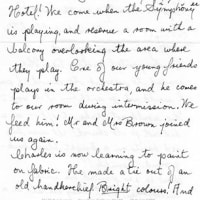 Hotel! We come when the Symphony
is playing, and reserve a room with a
balcony overlooking the area where
they play. One of our young friends
plays in the orchestra, and he comes
to our room during intermission. We
feed him! Mr and Mrs Brown joined
us again.
Charles is now learning to paint
on fabric. He made a tie out of an
old handkerchief Bright colours. And